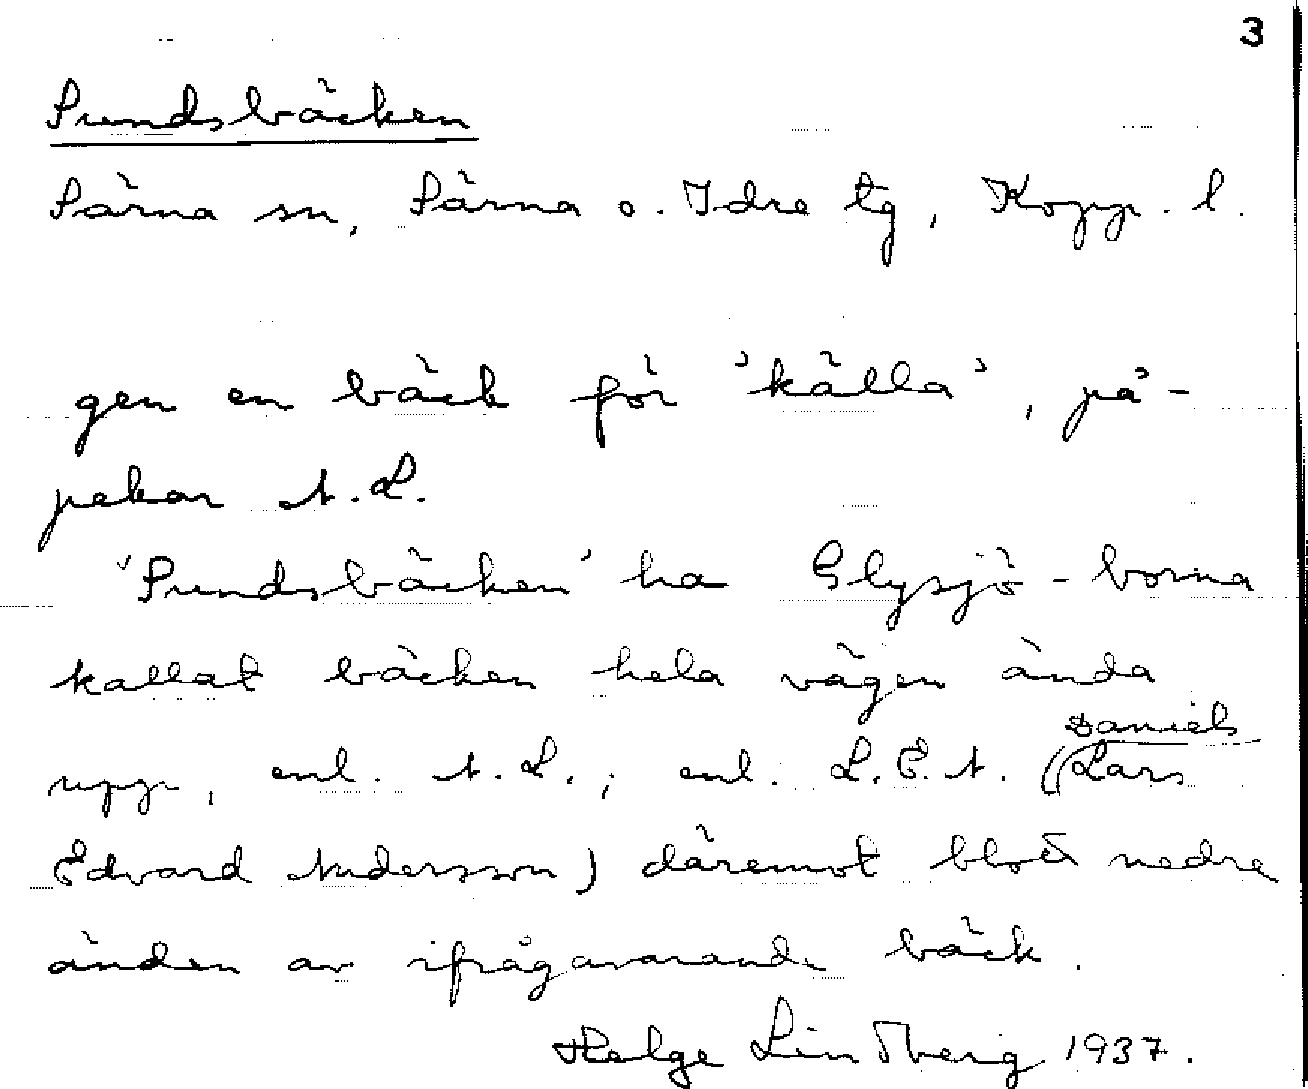 3
Sundsbäcken
Särna sn, Särna o. Idre tg, Kopp. l.
gen en bäck för 'källa', på-
pekar A.L.
'Sundsbäcken' ha Glysjö-borna
kallat bäcken hela vägen ända
Daniels
upp, enl. A.L.; enl. L.E.A. (Lars
Edvard Andersson) däremot blott nedre
änden av ifrågavarande bäck.
Helge Lindberg 1937.